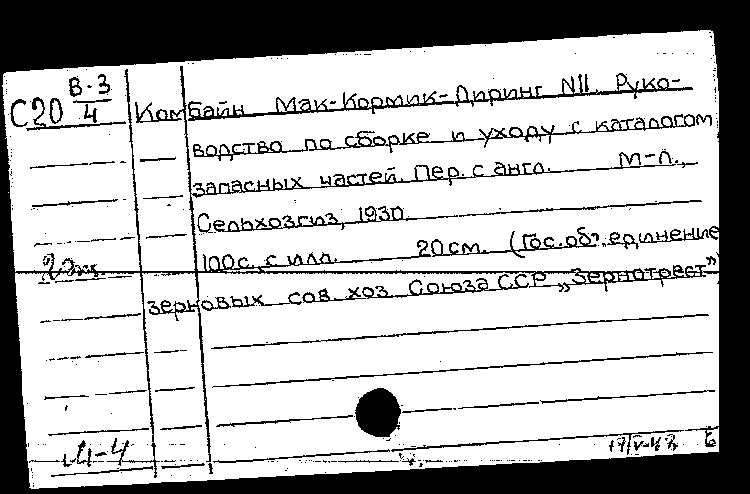 С20 В-3/4
Комбайн Мак-Кормик-Диринг N11. Руко-
водство по сборке и уходу с каталогом
запасных частей. Пер. с англ. М-Л.,
Сельхозгиз, 1930.
100с., с илл. 20см. (Гос.об?.единение
2 экз.
зерновых сов. хоз. Союза ССР „Зернотрест”)
М-4